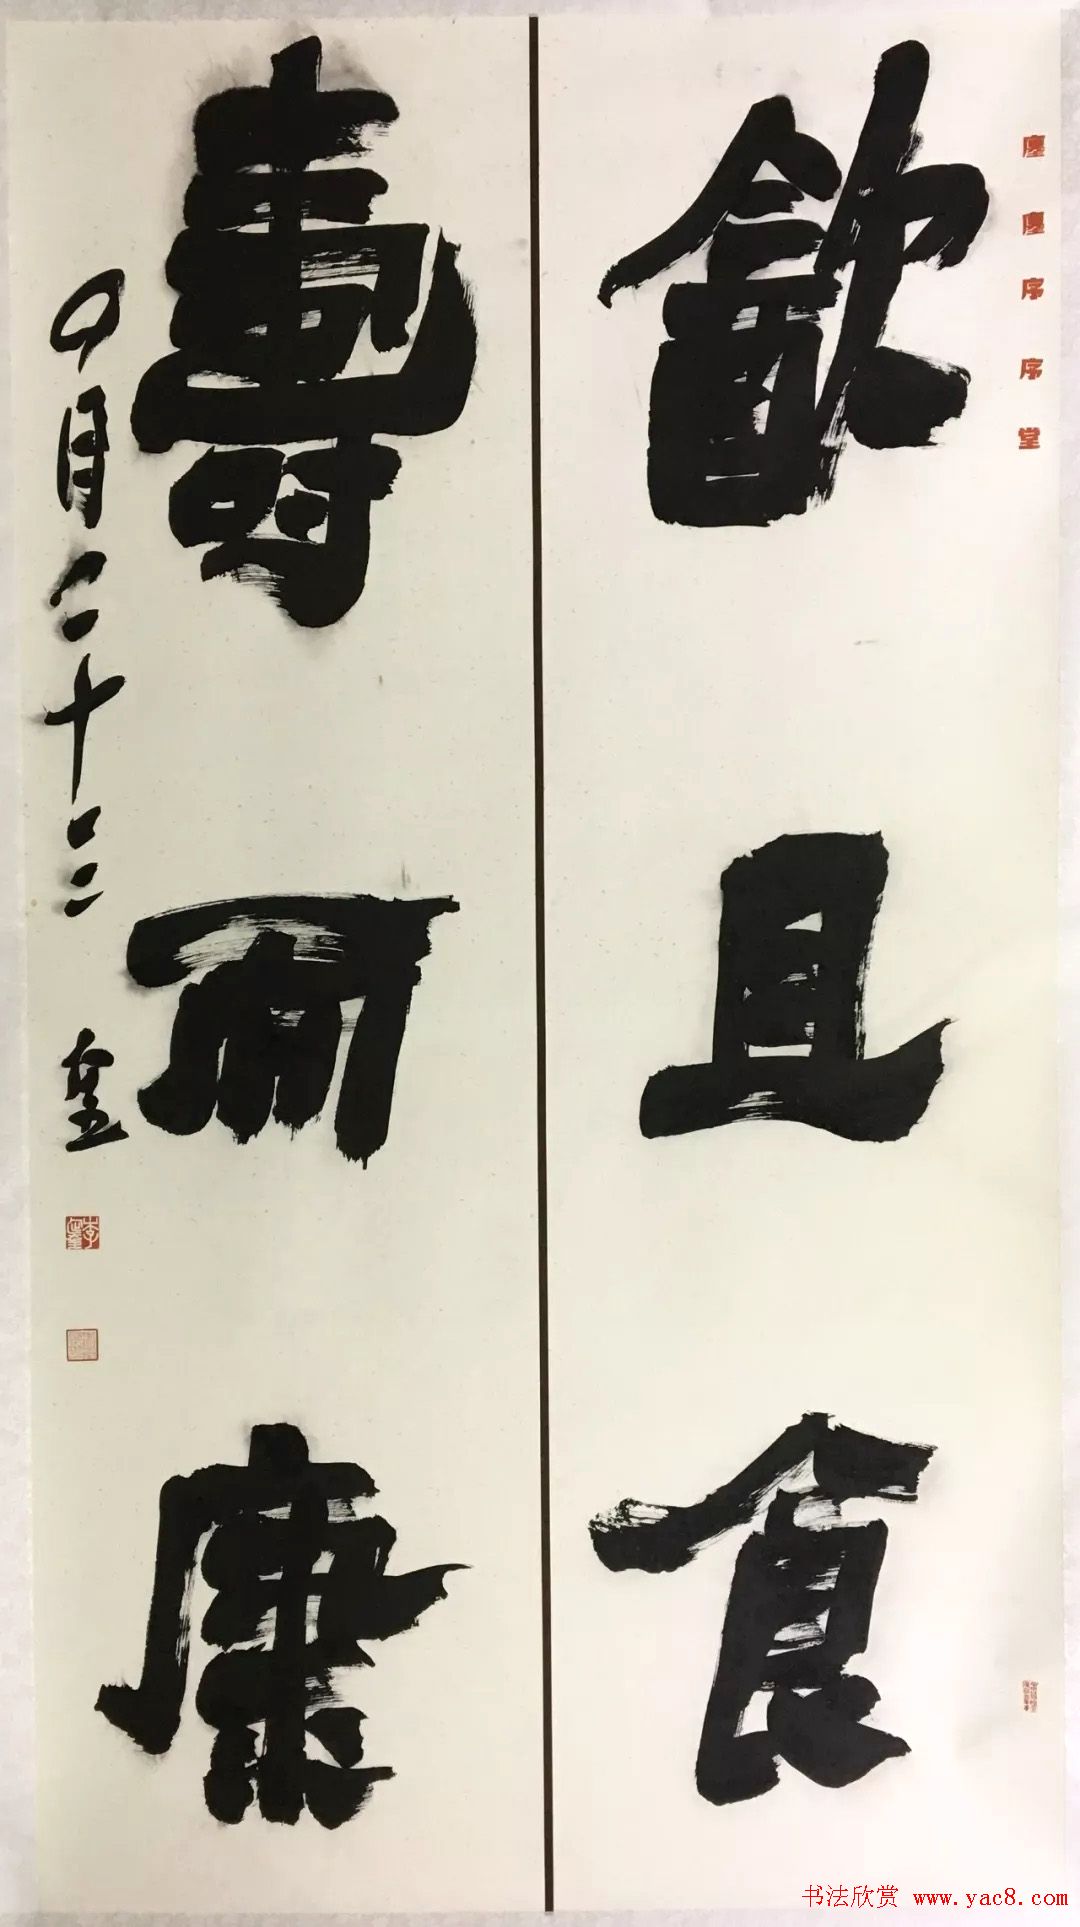 飲且食
壽而康
四月二十三
書法欣賞 www.yac8.com